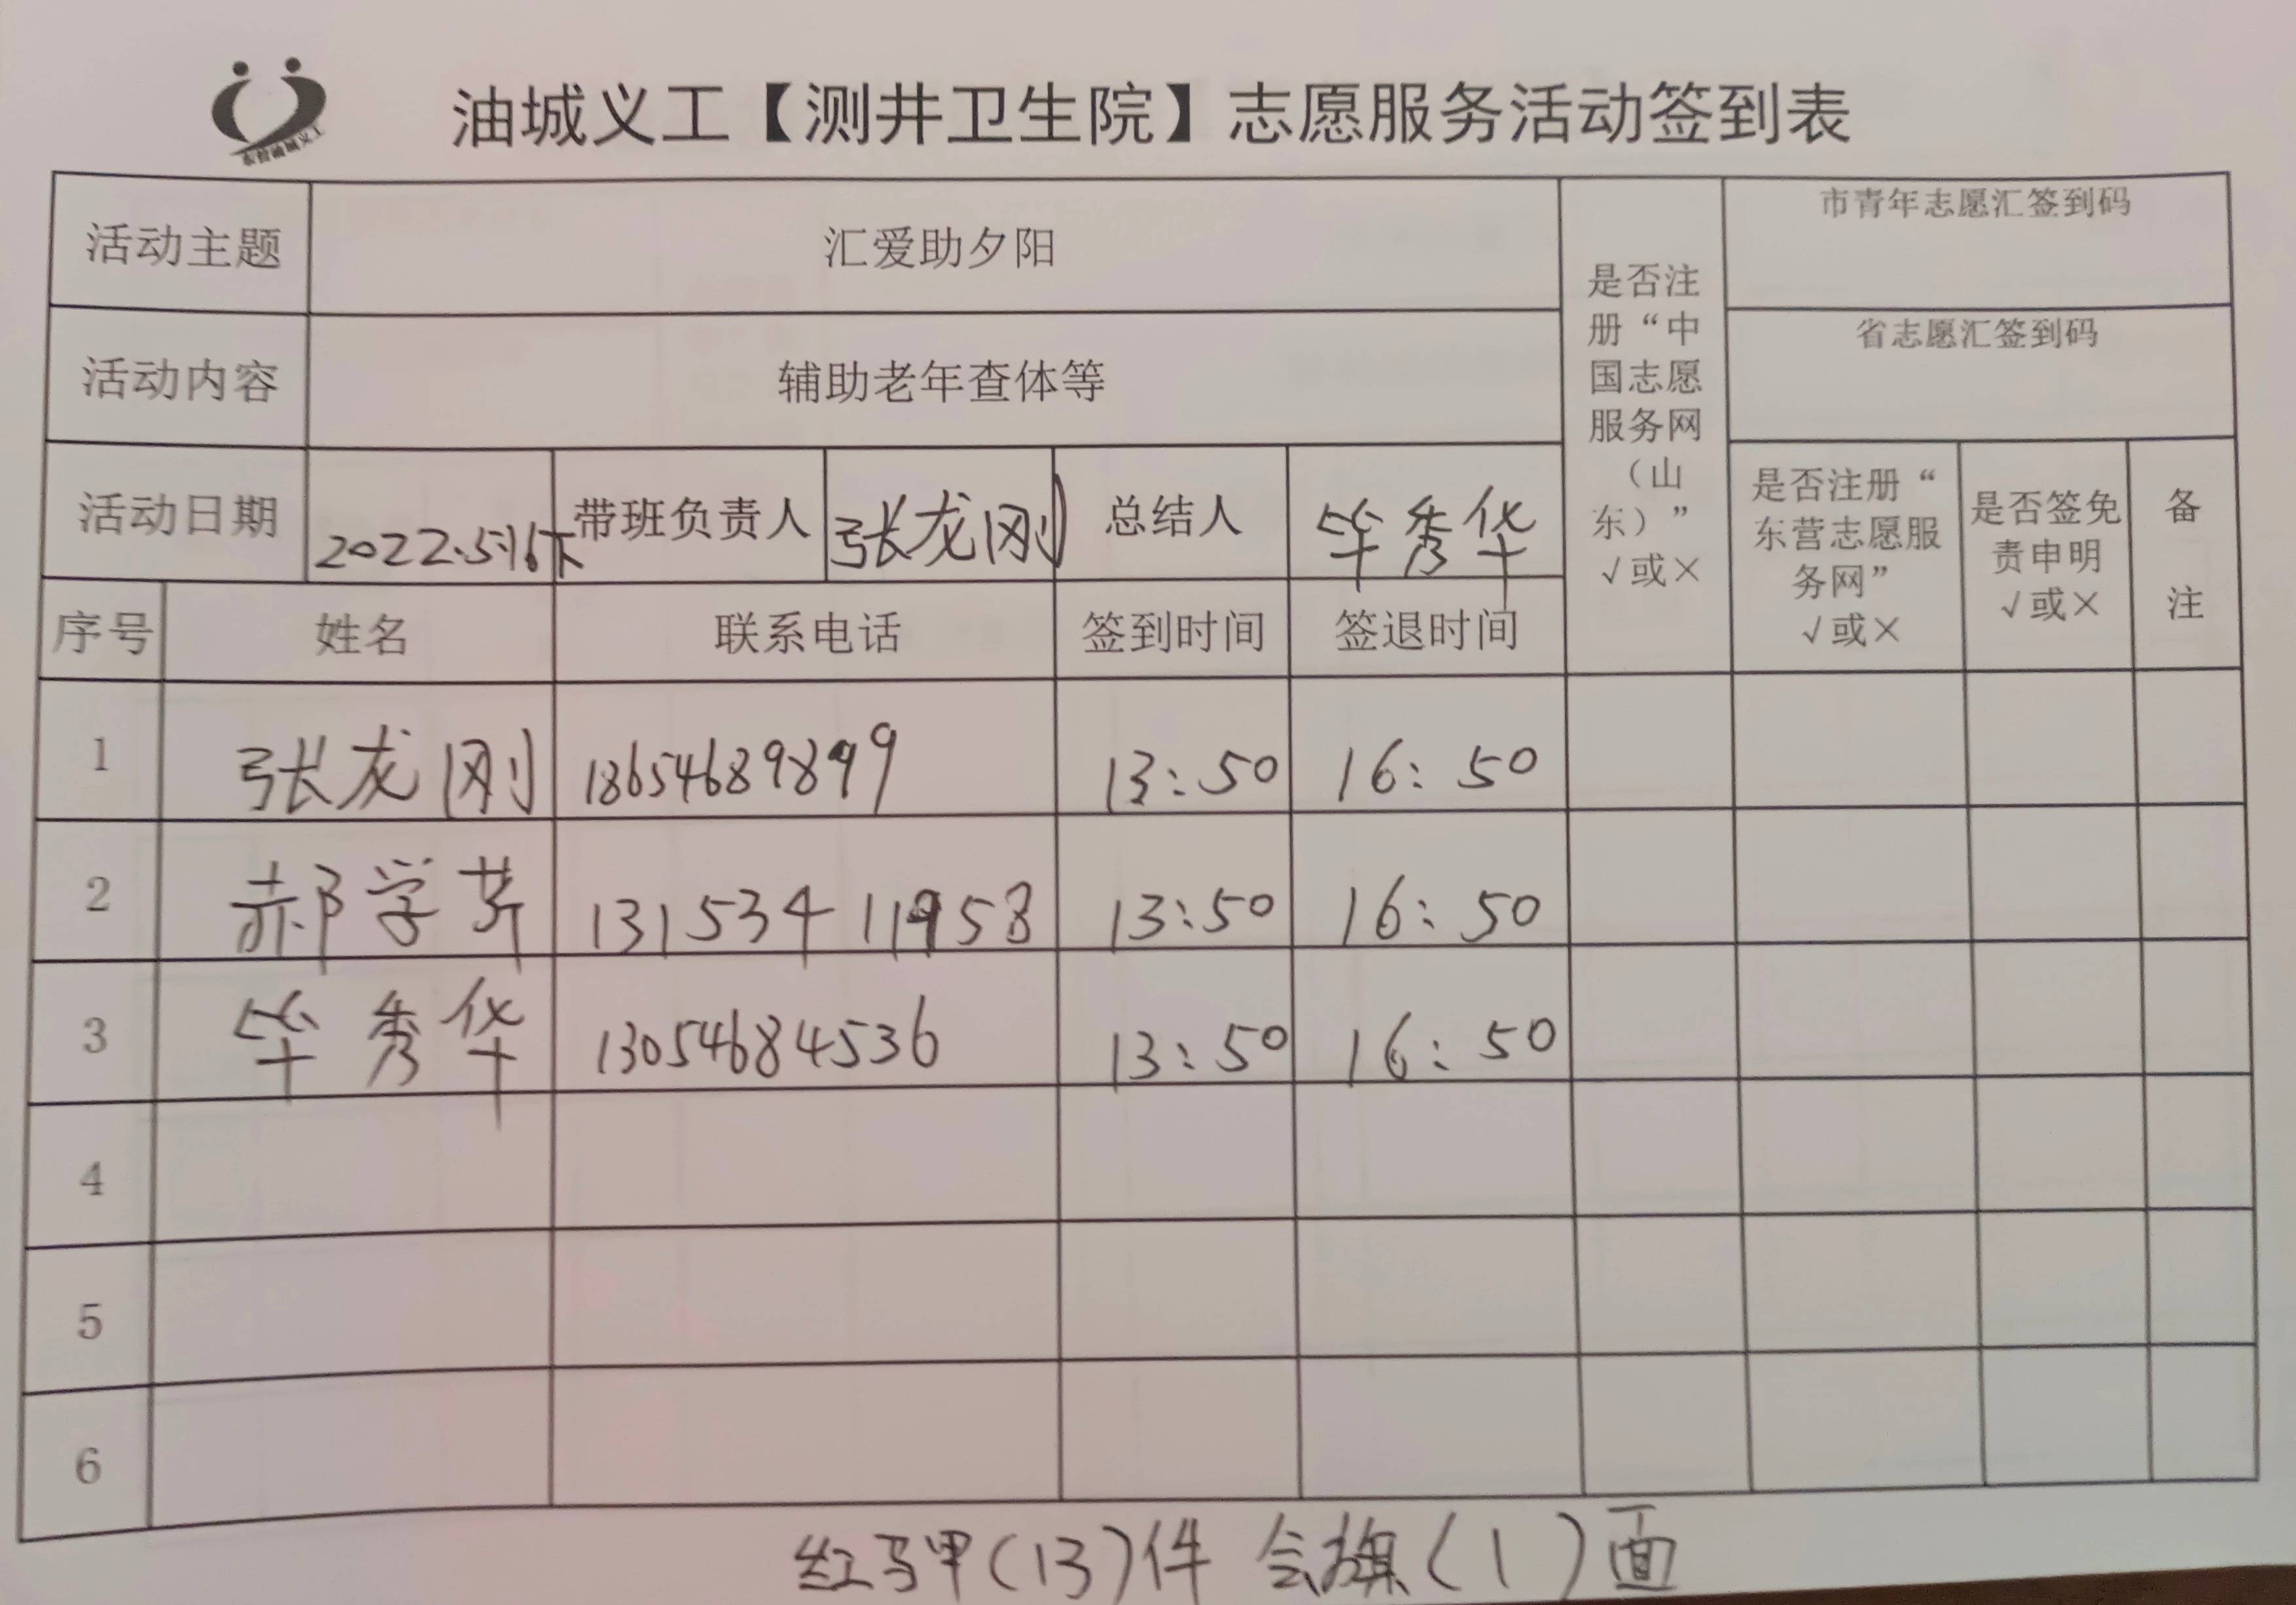 东营油城义工
油城义工【测井卫生院】志愿服务活动签到表
活动主题 汇爱助夕阳
活动内容 辅助老年查体等
活动日期 2022.5.16下 带班负责人 张龙刚 总结人 毕秀华
是否注册“中国志愿服务网（山东）”√或×
市青年志愿汇签到码
省志愿汇签到码
是否注册“东营志愿服务网”√或×
是否签免责申明√或×
备注
序号 姓名 联系电话 签到时间 签退时间
1 张龙刚 18654689899 13:50 16:50
2 郝学芹 13153411958 13:50 16:50
3 毕秀华 13054684536 13:50 16:50
4
5
6
红马甲(13)件 会旗(1)面